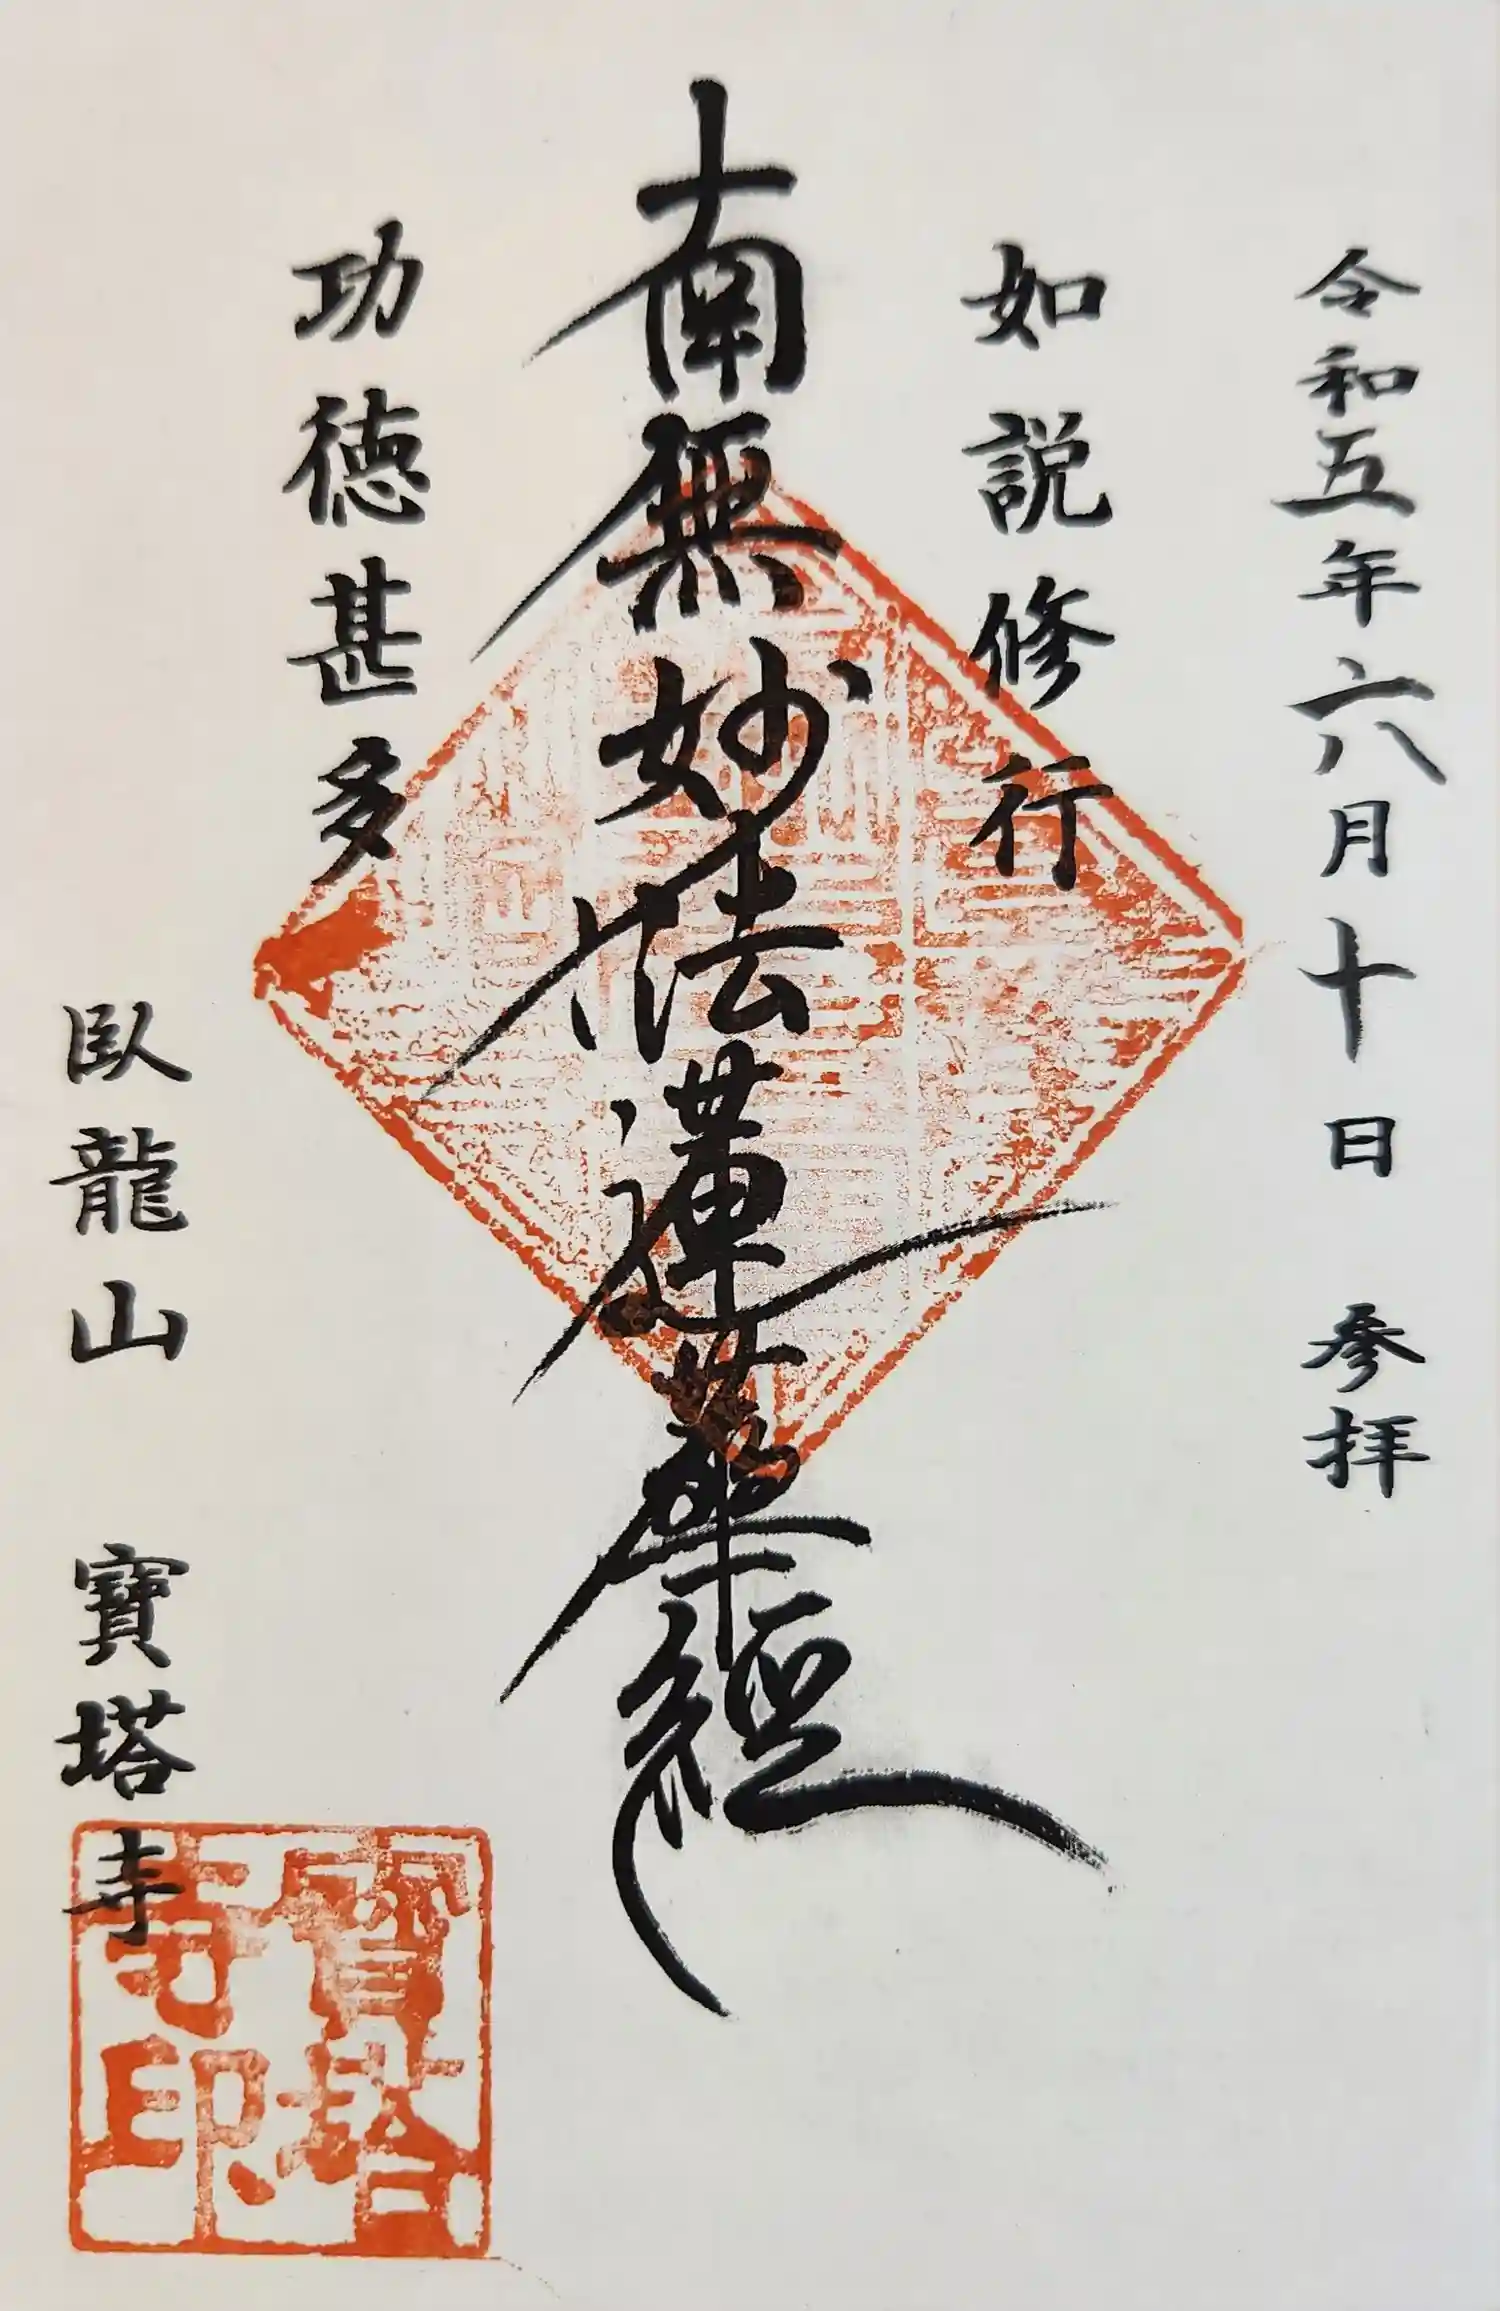 令和五年六月十日 参拝
如説修行
南無妙法蓮華経
功徳甚多
臥龍山 寶塔寺
寶塔
寺印